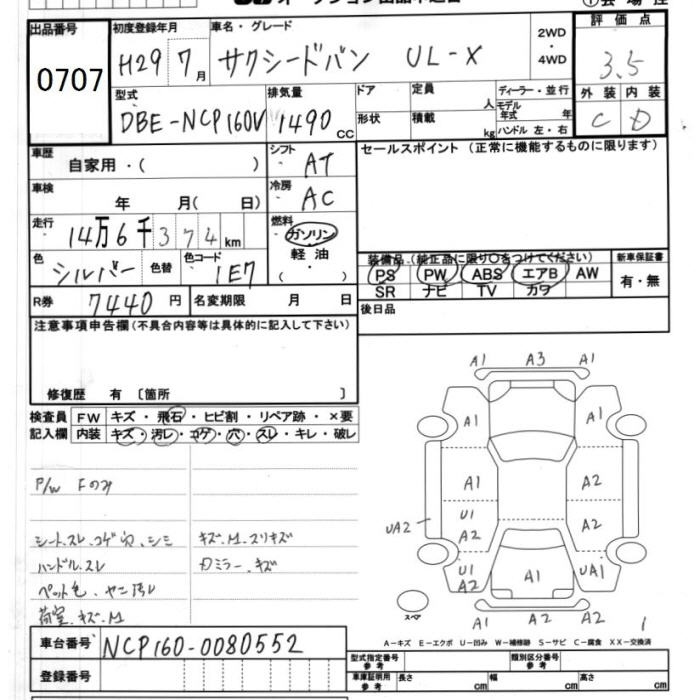 出品番号
0707
初度登録年月
H29 7月
車名・グレード
サクシードバン UL-X
2WD
・
4WD
評価点
3.5
外装 内装
C D
型式
DBE-NCP160V
排気量
1490 CC
ドア
定員 人
形状
積載 kg
ディーラー・並行
モデル年式 年
ハンドル 左・右
車歴
自家用・( )
シフト
AT
セールスポイント (正常に機能するものに限ります)
車検
年 月( 日)
冷房
AC
走行
14万6千374km
燃料
ガソリン
軽油
( )
色
シルバー
色替
色コード
1E7
装備品 (純正品に限り○をつけてください)
PS PW ABS エアB AW
SR ナビ TV カワ
新車保証書
有・無
R券 7440円
名変期限 月 日
後日品
注意事項申告欄(不具合内容等は具体的に記入して下さい)
修復歴 有 〔箇所 〕
検査員 FW キズ・飛石・ヒビ割・リペア跡・×要
記入欄 内装 キズ・汚レ・コゲ・穴・スレ・キレ・破レ
P/W Fのみ
シート.スレ.コゲ穴.シミ
キズ.M.スリキズ
ハンドル.スレ
ペット毛.ヤニ汚レ
荷室.キズ.M
A1 A3 A1
A1 A1
A1 A2
U1
A2 A2
UA2
U1
A2 A1 UA1
スペア
A2 A2 A2
1
A-キズ E-エクボ U-凹み W-補修跡 S-サビ C-腐食 XX-交換済
車台番号 NCP160-0080552
登録番号
型式指定番号 参考
類別区分番号 参考
車庫証明用 参考
長さ cm
幅 cm
高さ cm